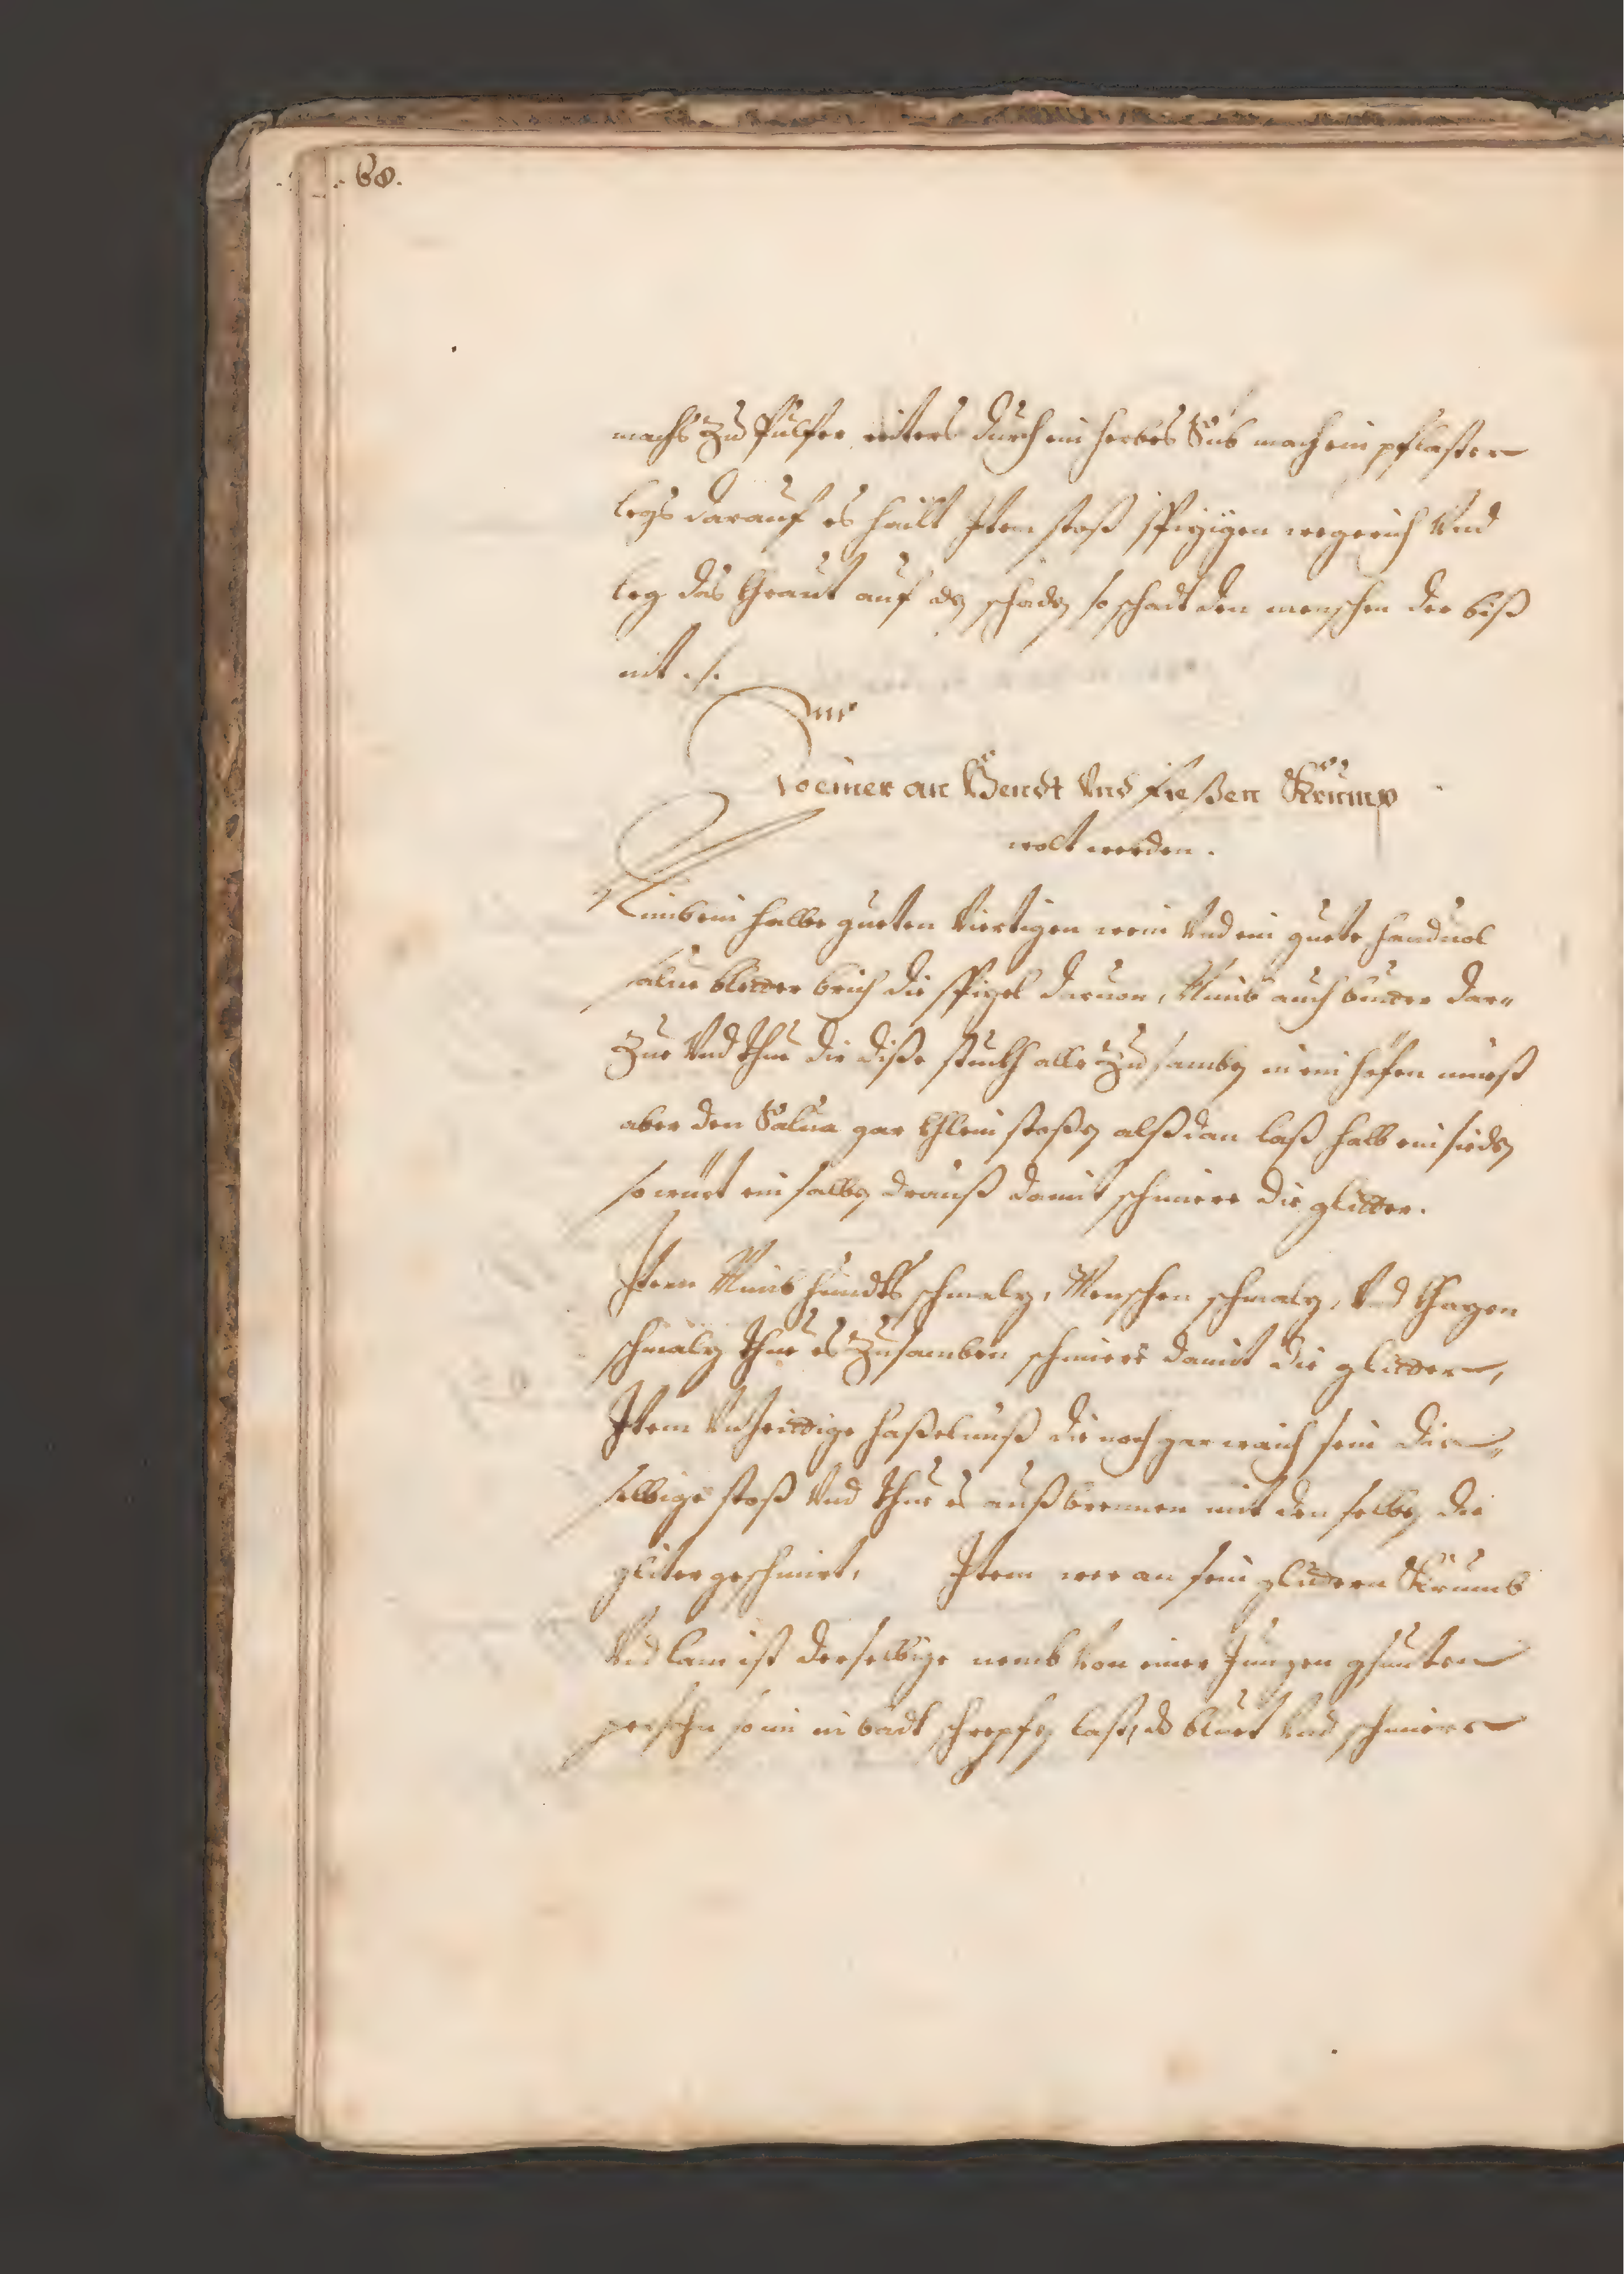 68.
machs Zu Pulfer reiters durch ein herbes Sib mach ein pflaster
legs darauf es hailt Item stoß spizigen wegerich Vnd
leg das Kraut auf dẽ schadẽ so schadt den menschen der biß
nit ./.
Fir
So einer an Hendt Vnd Fießen Krump
wolt werden.
Nimb ein halbe gueten Viertigen wein Vnd ein guete handuol
salue bletter brich die stigel daruon, Nimb auch butter dar„
Zue Vnd thue die diße stuckh alle Zu sambẽ in ein hefen muest
aber den Salua gar khlein stoßẽ alß dan laß halb ein siedẽ
so wirt ein salbẽ drauß damit schmiere die glitter.
Item Nimb hundts schmalz, Menschen schmalz, Vnd khazen
schmalz thue es Zusamben schmiere damit die glitter,
Item Vnzeittige haßelnuß die noch gar waich sein die„
selbige stoß Vnd thue es auß brennen mit den selbẽ die
gliter geschmirt, Item wer an sein glidern Krumb
Vnd lam ist derselbige nemb Von einer Jungen gsunten
persohn so im in badt schrepfẽ last, ds bluet Vnd schmiere